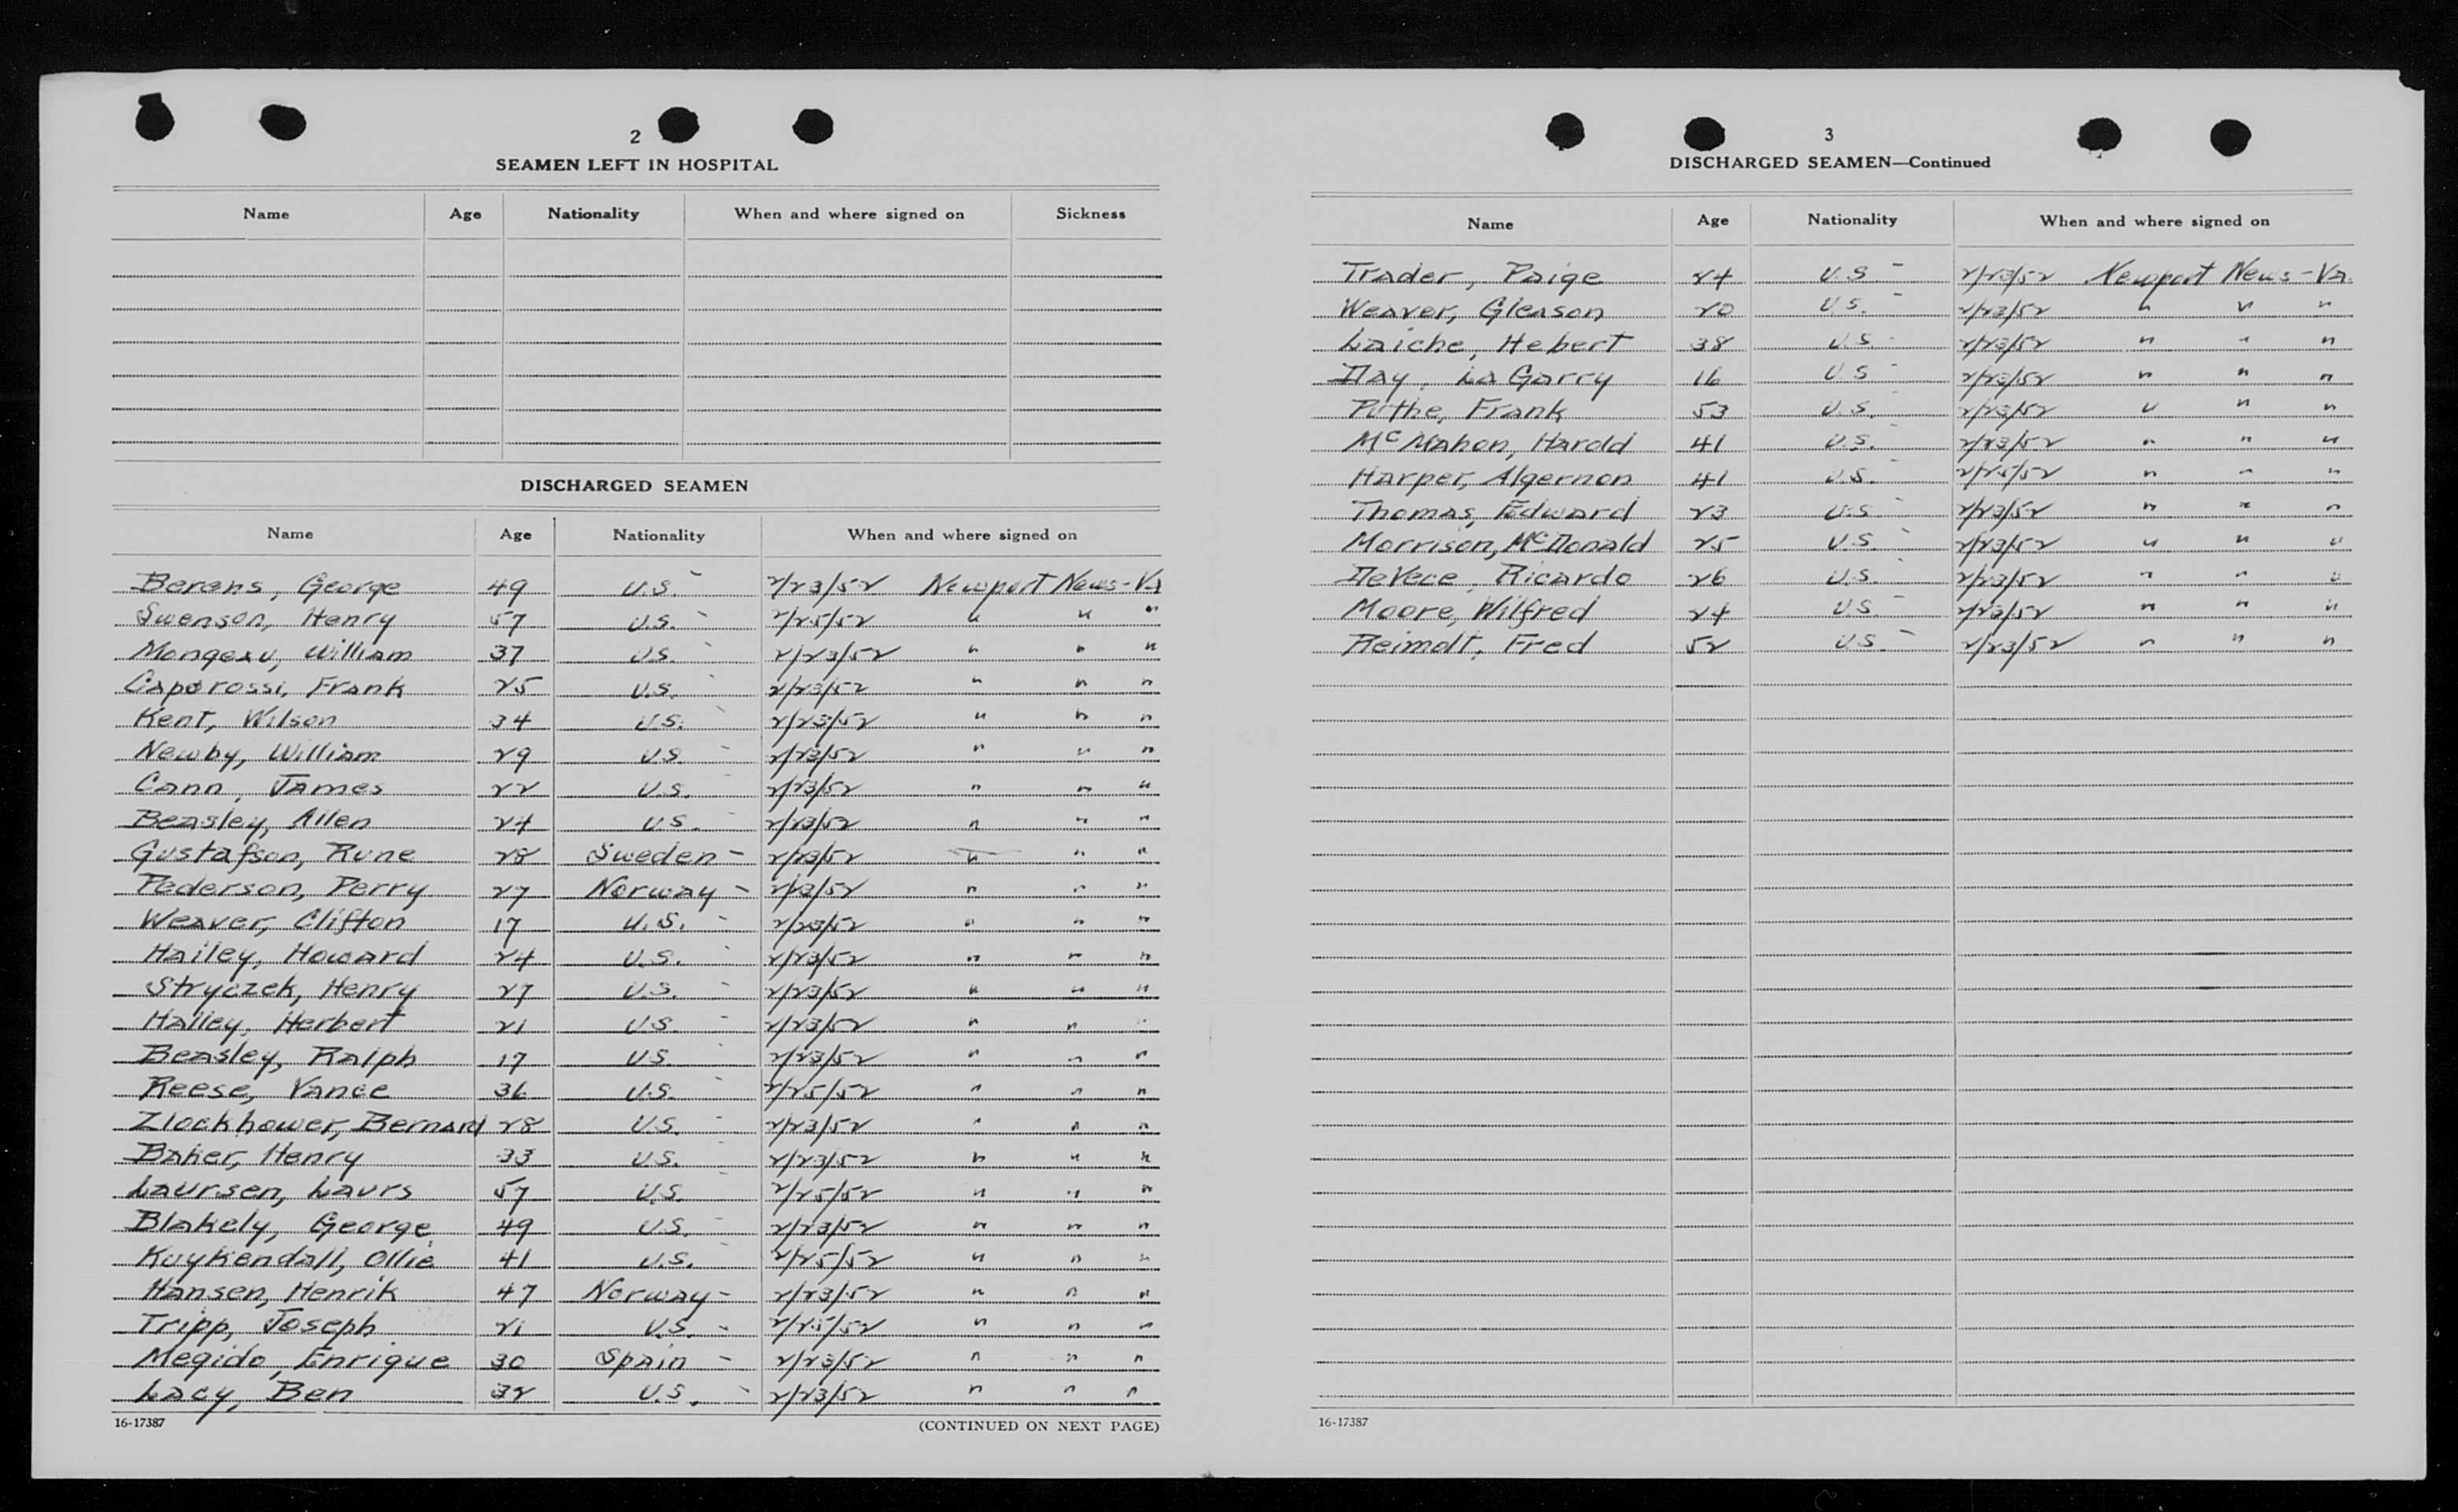 2
SEAMEN LEFT IN HOSPITAL
Name Age Nationality When and where signed on Sickness
DISCHARGED SEAMEN
Name Age Nationality When and where signed on
Berens, George 49 U.S. 2/23/52 Newport News-Va
Swenson, Henry 57 U.S. 2/25/52 " " "
Mongeau, William 37 U.S. 2/23/52 " " "
Caporossi, Frank 25 U.S. 2/23/52 " " "
Kent, Wilson 34 U.S. 2/23/52 " " "
Newby, William 29 U.S. 2/23/52 " " "
Cann, James 22 U.S. 2/23/52 " " "
Beasley, Allen 24 U.S. 2/23/52 " " "
Gustafson, Rune 28 Sweden - 2/23/52 " " "
Pederson, Perry 27 Norway - 2/23/52 " " "
Weaver, Clifton 17 U.S. - 2/23/52 " " "
Hailey, Howard 24 U.S. 2/23/52 " " "
Stryczek, Henry 27 U.S. 2/23/52 " " "
Hailey, Herbert 21 U.S. 2/23/52 " " "
Beasley, Ralph 17 U.S. 2/23/52 " " "
Reese, Vance 36 U.S. 2/25/52 " " "
Zlockhower, Bernard 28 U.S. 2/23/52 " " "
Baker, Henry 33 U.S. 2/23/52 " " "
Laursen, Laurs 57 U.S. 2/25/52 " " "
Blakely, George 49 U.S. 2/23/52 " " "
Kuykendall, Ollie 41 U.S. 2/25/52 " " "
Hansen, Henrik 47 Norway - 2/23/52 " " "
Tripp, Joseph 21 U.S. - 2/25/52 " " "
Megido, Enrique 30 Spain - 2/23/52 " " "
Lacy, Ben 32 U.S. - 2/23/52 " " "
16-17387 (CONTINUED ON NEXT PAGE)
3
DISCHARGED SEAMEN—Continued
Name Age Nationality When and where signed on
Trader, Paige 24 U.S - 2/23/52 Newport News-Va.
Weaver, Gleason 20 U.S. - 2/23/52 " " "
Laiche, Hebert 38 U.S. - 2/23/52 " " "
Day, La Garry 16 U.S - 2/23/52 " " "
Puthe, Frank 53 U.S. 2/23/52 " " "
McMahon, Harold 41 U.S. 2/23/52 " " "
Harper, Algernon 41 U.S. 2/25/52 " " "
Thomas, Edward 23 U.S 2/23/52 " " "
Morrison, McDonald 25 U.S. 2/23/52 " " "
DeVece, Ricardo 26 U.S. 2/23/52 " " "
Moore, Wilfred 24 U.S. - 2/23/52 " " "
Reimolt, Fred 52 U.S. - 2/23/52 " " "
16-17387